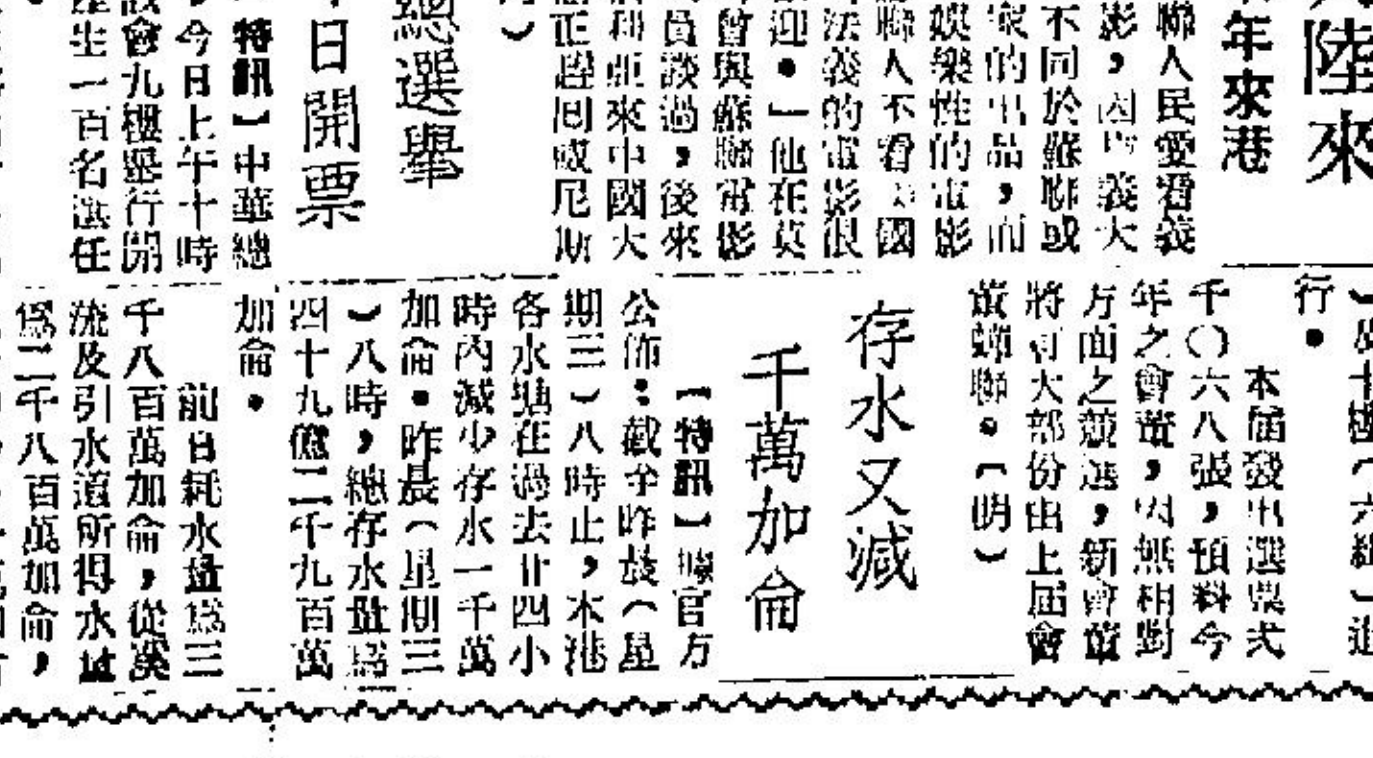 陸來
年來港
聯人民愛看義
影，因義大
不同於蘇聯或
家的出品，而
娛樂性的電影
聯人不看國
法義的電影很
迎。」他在莫
曾與蘇聯電影
員談過，後來
利亞來中國大
正趕回威尼斯
）
總選舉
日開票
特訊】中華總
，今日上午十時
會九樓舉行開
生一百名選任
）及十樓（六組）進
行。
本屆發出選票弍
千〇六八張，預料今
年之會董，因無相對
方面之競選，新會董
將有大部份由上屆會
董蟬聯。（明）
存水又減
千萬加侖
【特訊】據官方
公佈：截至昨晨（星
期三）八時止，本港
各水塘在過去廿四小
時內減少存水一千萬
加侖。昨晨（星期三
）八時，總存水量爲
四十九億二千九百萬
加侖。
前日耗水量爲三
千八百萬加侖，從溪
流及引水道所得水量
爲二千八百萬加侖，